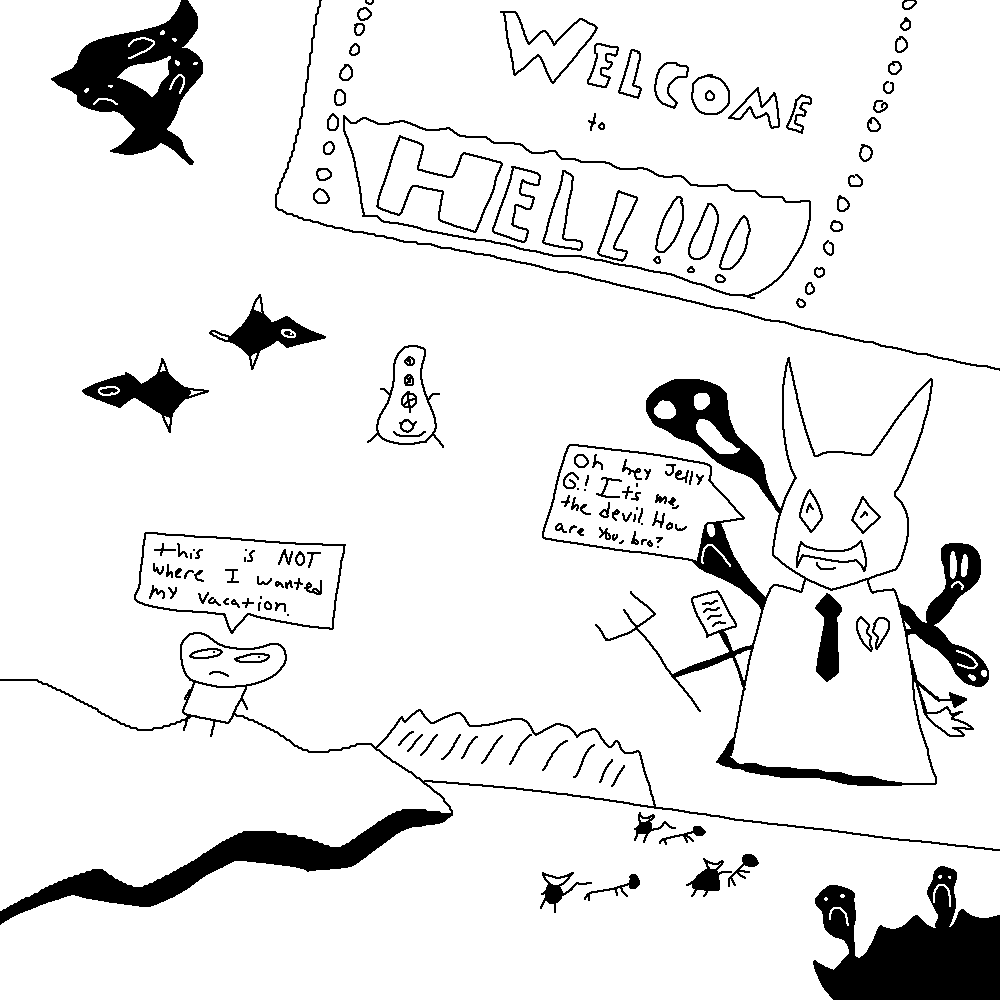 WELCOME
to
HELL!!!
Oh hey Jelly
G.! It's me,
the devil. How
are you, bro?
this is NOT
where I wanted
my vacation.